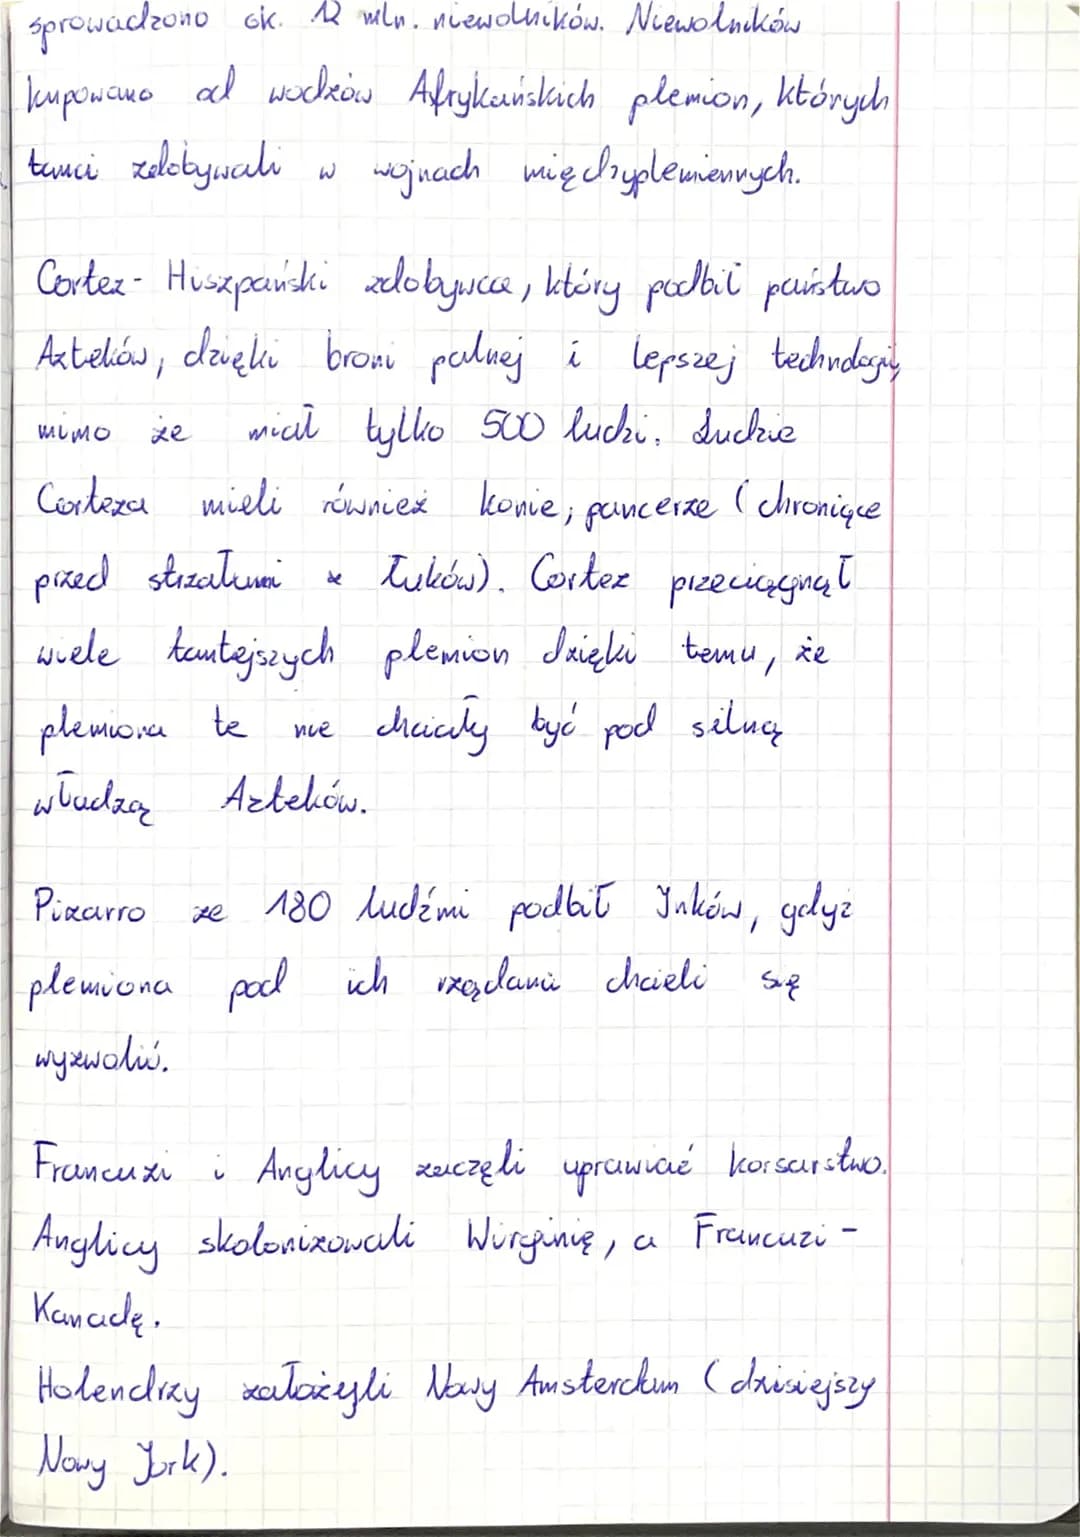 sprowadzono ok. 12 mln. niewolników. Niewolników
kupowano od wodzów Afrykańskich plemion, których
tamci zdobywali w wojnach międzyplemiennych.
Cortez- Hiszpański zdobywca, który podbił państwo
Azteków, dzięki broni palnej i lepszej technologii,
mimo że miał tylko 500 ludzi. Ludzie
Corteza mieli również konie, pancerze (chroniące
przed strzałami z łuków). Cortez przeciągnął
wiele tamtejszych plemion dzięki temu, że
plemiona te nie chciały być pod silną
władzą Azteków.
Pizarro ze 180 ludźmi podbił Inków, gdyż
plemiona pod ich rządami chcieli się
wyzwolić.
Francuzi i Anglicy zaczęli uprawiać korsarstwo.
Anglicy skolonizowali Wirginię, a Francuzi -
Kanadę.
Holendrzy założyli Nowy Amsterdam (dzisiejszy
Nowy Jork).